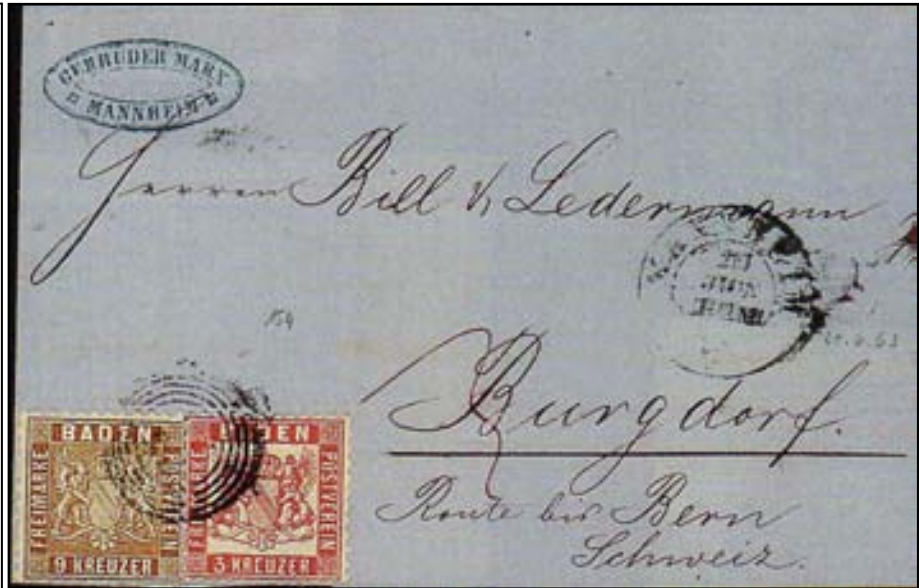 GEBRÜDER MARX
MANNHEIM
Herren Bill & Ledermann
MANNHEIM
154
Burgdorf.
Route bis Bern
Schweiz.
BADEN
FREIMARKE
POSTVEREIN
9 KREUZER
BADEN
FREIMARKE
POSTVEREIN
3 KREUZER